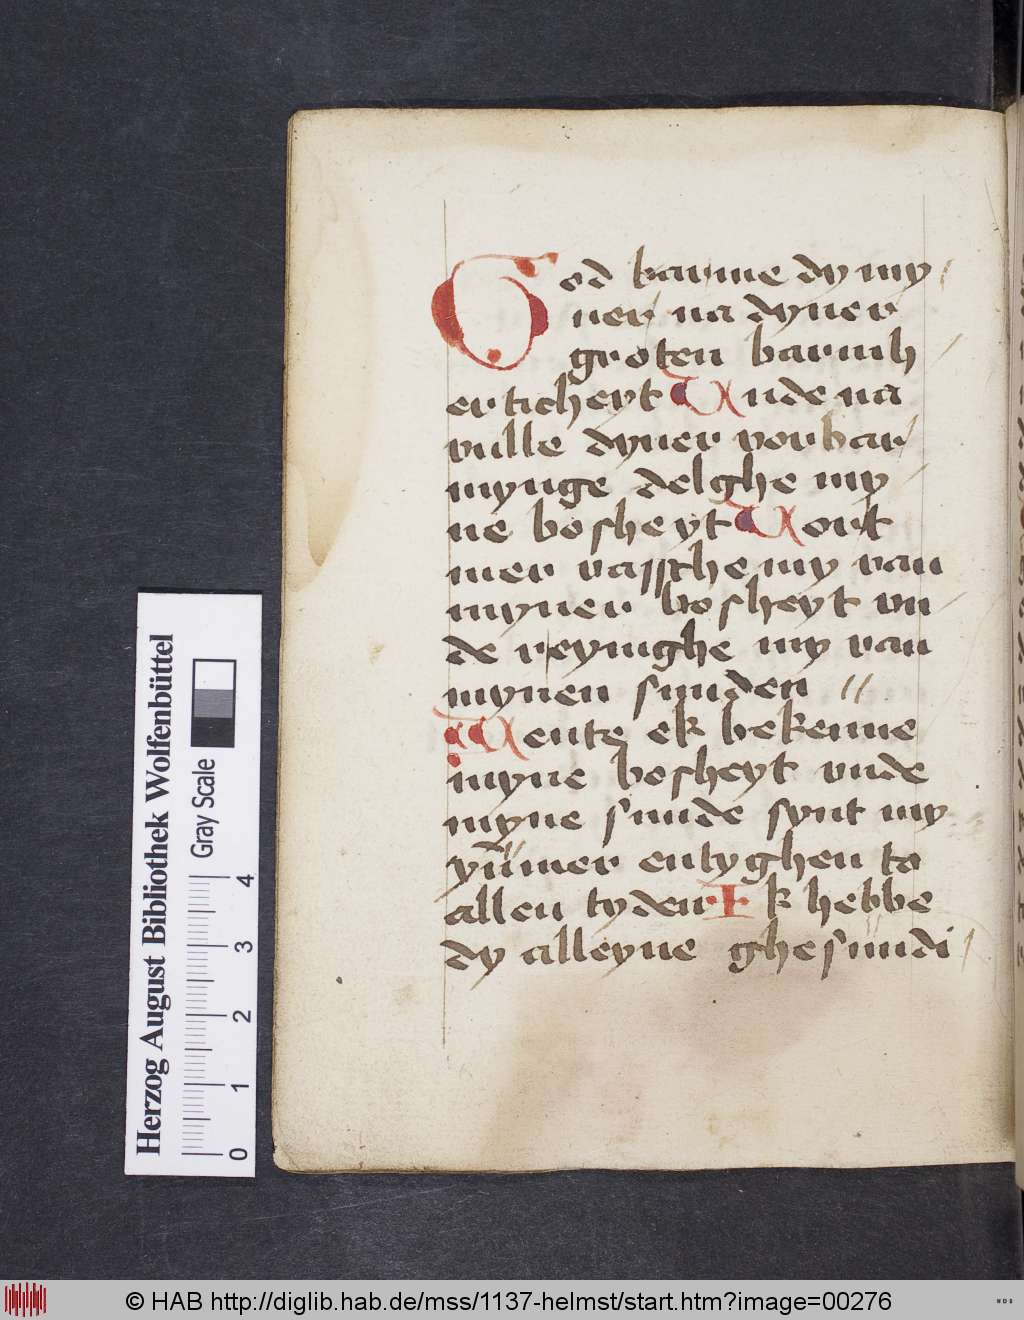 God barme dy my/
ner na dyner
groten barmh/
erticheyt Unde na
vulle dyner vorbar/
mynge delghe my/
ne bosheyt Vort
mer vassche my van
myner bosheyt vn
de reynighe my van
mynen sunden //
Wente ek bekenne
myne bosheyt vnde
myne sunde synt my
ymmer entyghen to
allen tyden Ek hebbe
dy alleyne ghesundi/
Herzog August Bibliothek Wolfenbüttel
Gray Scale
0 1 2 3 4
© HAB http://diglib.hab.de/mss/1137-helmst/start.htm?image=00276